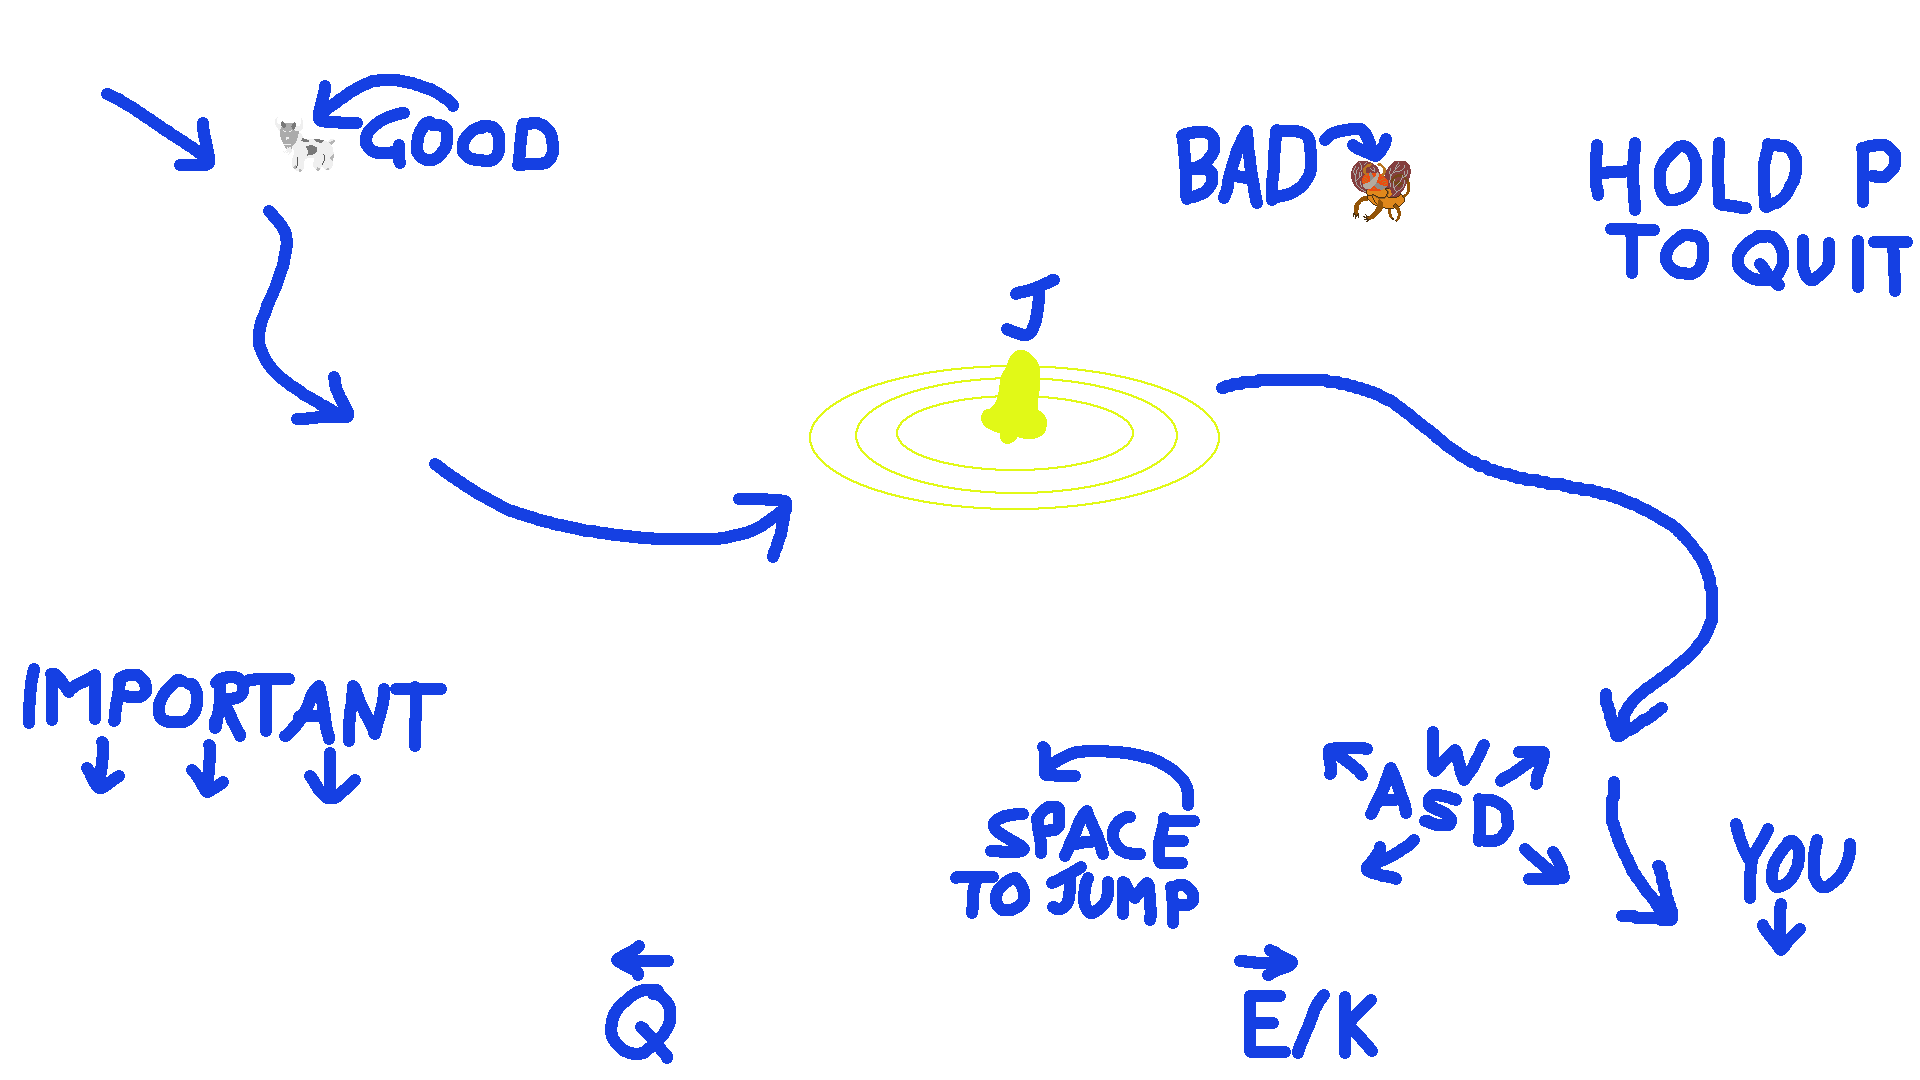 GOOD
BAD
HOLD P
TO QUIT
J
IMPORTANT
SPACE
TO JUMP
W
ASD
YOU
Q
E/K